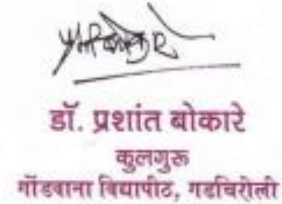 डॉ. प्रशांत बोकारे
कुलगुरू
गोंडवाना विद्यापीठ, गडचिरोली